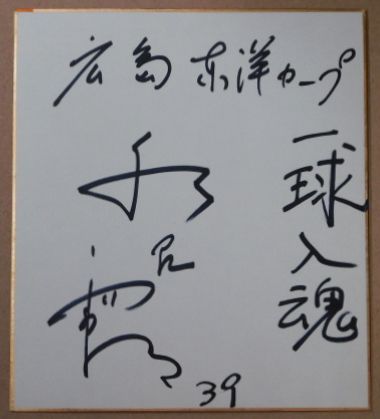 広島東洋カープ
一球入魂
39